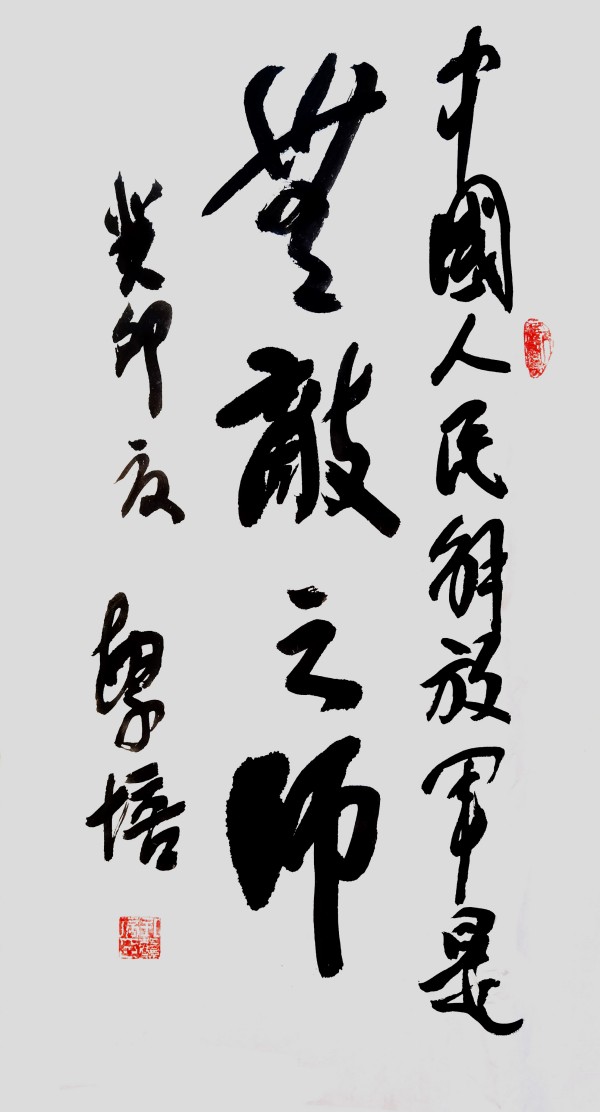 中國人民解放軍是
無敵之師
癸卯夏
培